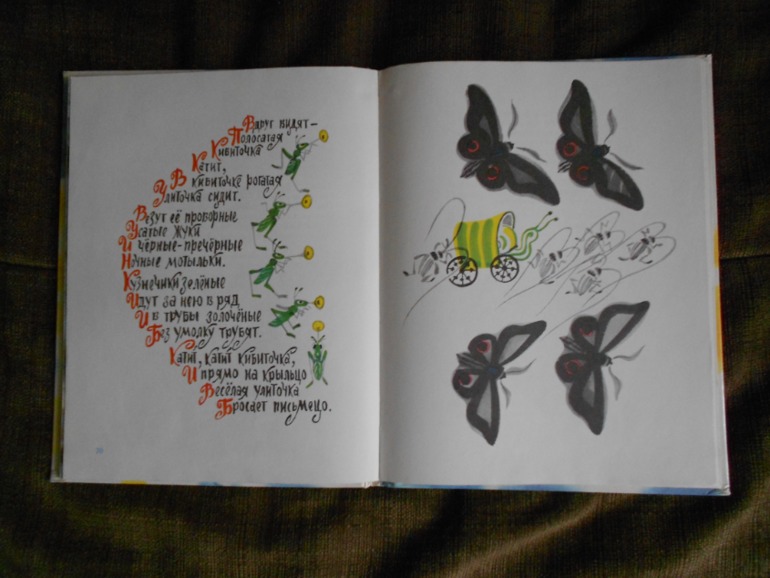 Вдруг видят—
Полосатая
Кибиточка
Катит,
В кибиточке рогатая
Улиточка сидит.
Везут её проворные
Усатые жуки
И чёрные-пречёрные
Ночные мотыльки.
Кузнечики зелёные
Идут за нею в ряд
И в трубы золочёные
Без умолку трубят.
Катит, катит кибиточка,
И прямо на крыльцо
Весёлая улиточка
Бросает письмецо.